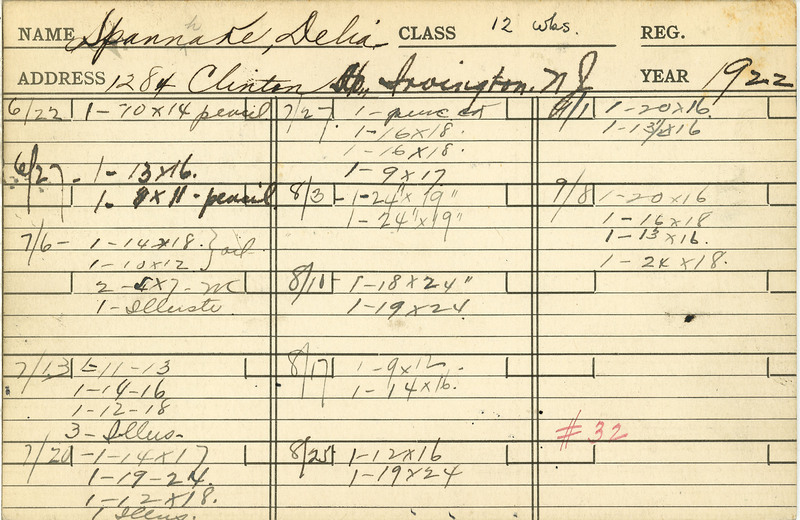 NAME Spannake, Delia CLASS 12 wks. REG.
ADDRESS 1284 Clinton Irvington, NJ YEAR 1922
6/22 1-10x14 pencil
6/27 - 1-13x16.
1- 9x11 - pencil
7/6 - 1-14x18. } oil
1-10x12
2-5x7-
1-Illustr.
7/13 1-11-13
1-14-16
1-12-18
3-Illus-
7/20 -1-14x17
1-19-24.
1-12x18.
1 Illus.
7/27 1-
1-16x18.
1-16x18.
1-9x17
8/3 -1-24"x19"
1-24"x19"
8/10 1-18x24"
1-19x24
8/17 1-9x12.
1-14x16.
8/25 1-12x16
1-19x24
9/1 1-20x16.
1-13x16
9/8 1-20x16
1-16x18
1-13x16.
1-24x18.
#32